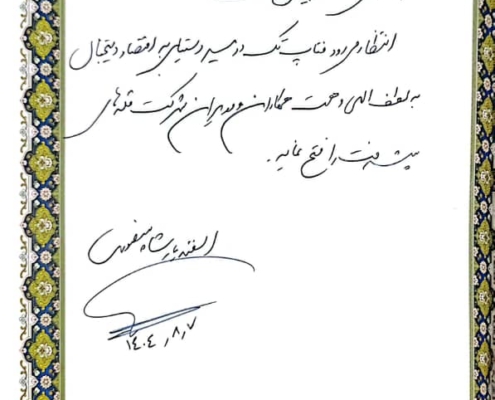 انتظار می رود فناپ تک در مسیر دستیابی به اقتصاد دیجیتال
به لطف الهی و همت همکاران و مدیران شرکت قله های
پیشرفت را فتح نماید.
اسفندیار شاه منصوری
۱۴۰۴٫۸٫۷